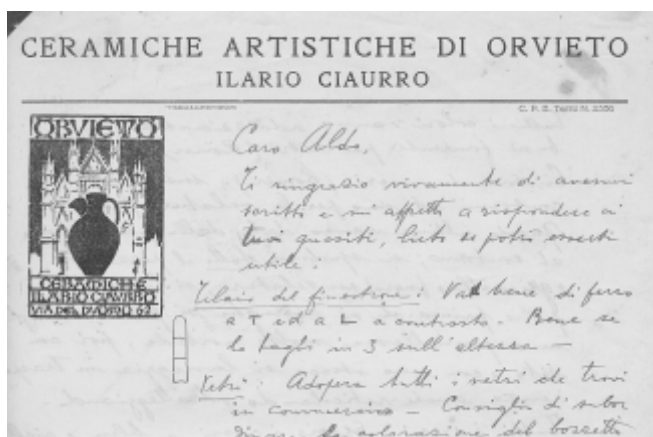 CERAMICHE ARTISTICHE DI ORVIETO
ILARIO CIAURRO
C. P. E. Terni N. 2350
ORVIETO
CERAMICHE
ILARIO CIAURRO
VIA DEL DUOMO 62
Caro Aldo,
Ti ringrazio vivamente di avermi
scritto e mi affretto a rispondere ai
tuoi quesiti, lieto se potrò esserti
utile.
Telaio del finestrone: Va bene di ferro
a T ed a L a contrasto. Bene se
lo tagli in 3 sull'altezza —
Vetri: Adopera tutti i vetri che trovi
in commercio — Consiglio di subor
dinare la colorazione del bozzetto